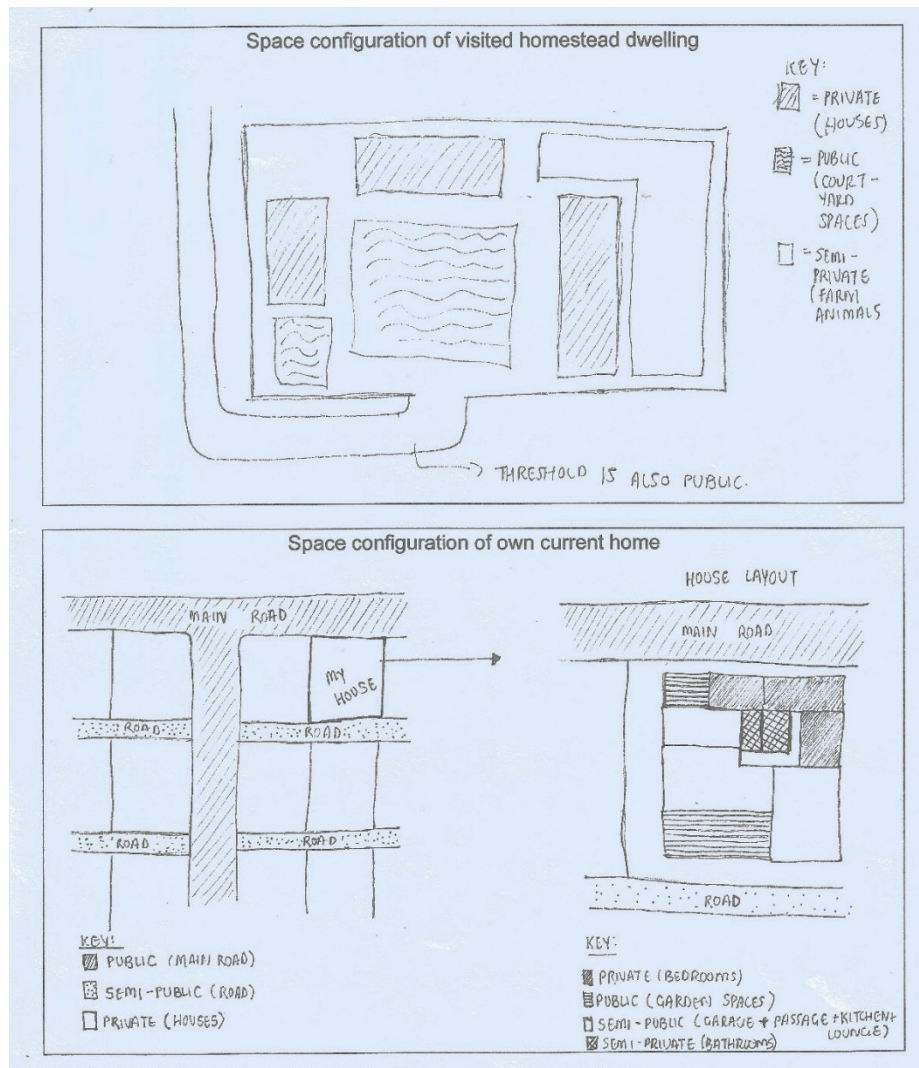 Space configuration of visited homestead dwelling
KEY:
= PRIVATE
(HOUSES)
= PUBLIC
(COURT-
YARD
SPACES)
= SEMI-
PRIVATE
(FARM
ANIMALS
THRESHOLD IS ALSO PUBLIC.
Space configuration of own current home
MAIN ROAD
MY
HOUSE
ROAD
ROAD
ROAD
ROAD
KEY:
PUBLIC (MAIN ROAD)
SEMI-PUBLIC (ROAD)
PRIVATE (HOUSES)
HOUSE LAYOUT
MAIN ROAD
ROAD
KEY:
PRIVATE (BEDROOMS)
PUBLIC (GARDEN SPACES)
SEMI-PUBLIC (GARAGE + PASSAGE + KITCHEN +
LOUNGE)
SEMI-PRIVATE (BATHROOMS)